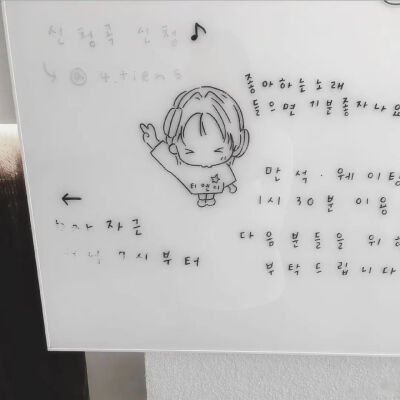 신청곡 신청 ♪
↳ @ 4.tien5
좋아하는노래
들으면 기분좋자나요
티앤디
만석·웨이팅
1시 30분 이용
다음분들을 위해
부탁드립니다
←
자글
7시부터